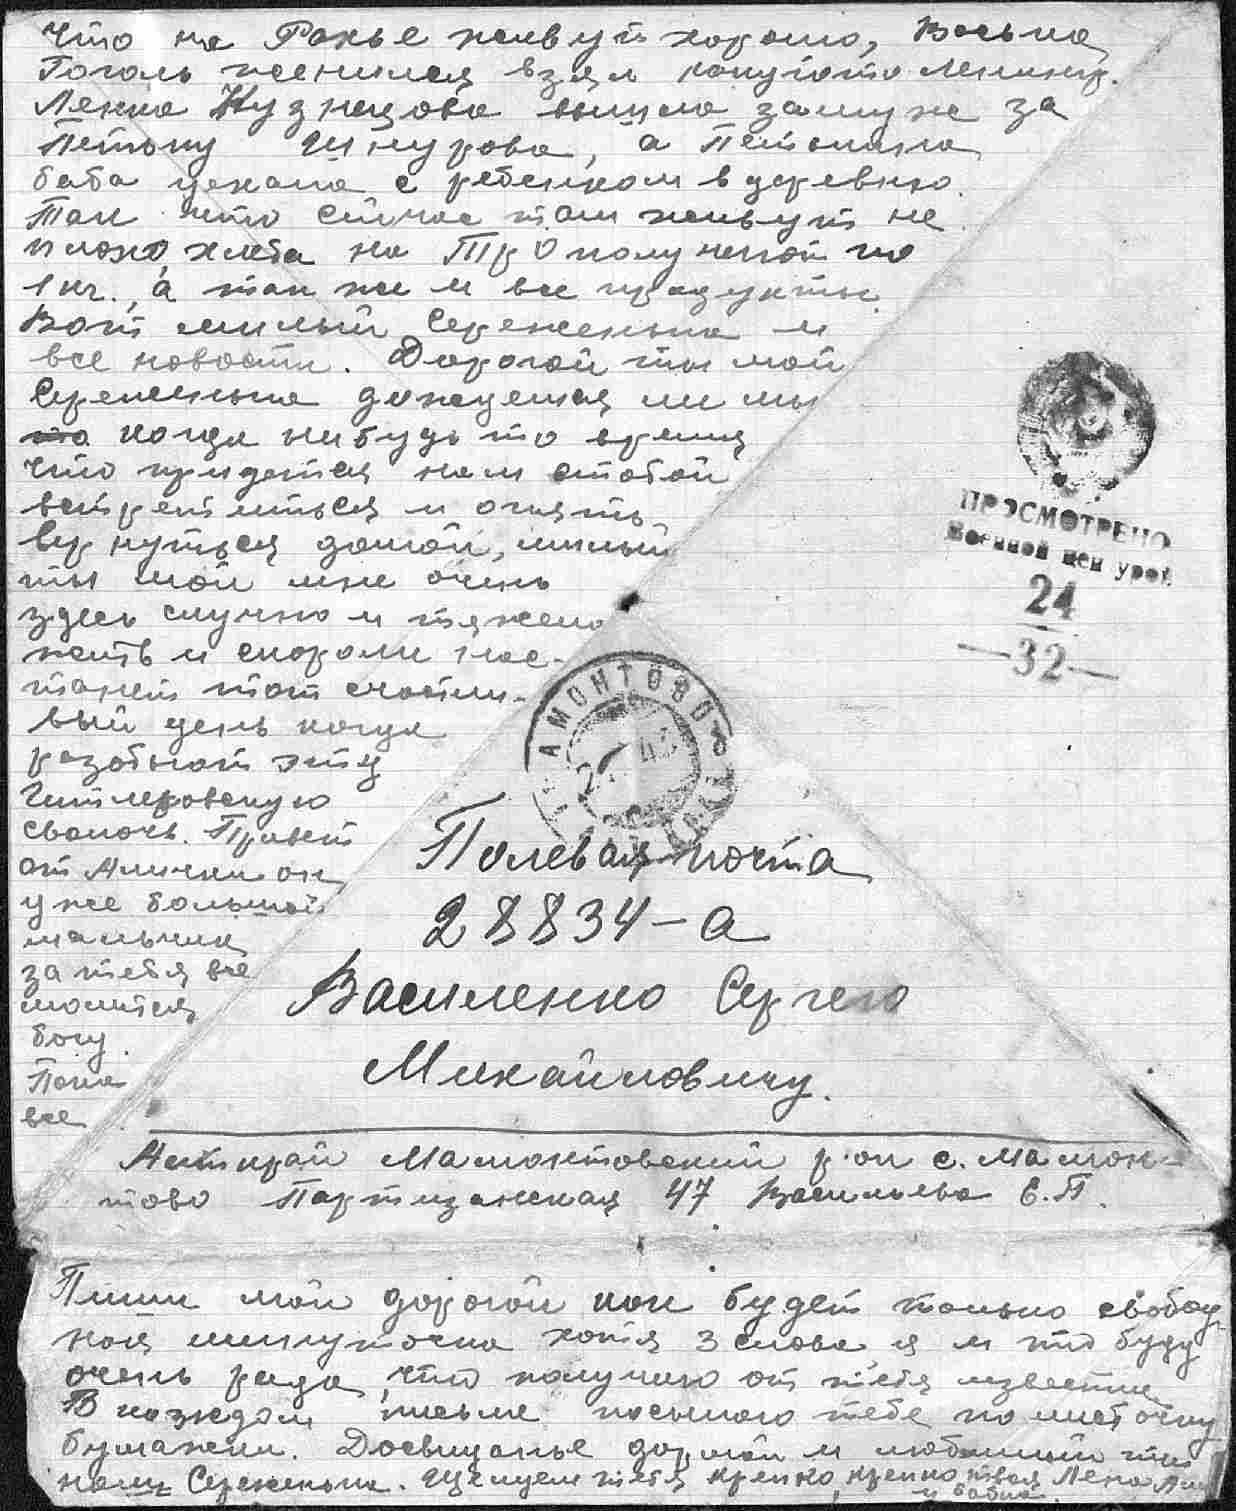 что на Ранье живут хорошо, Васька
Гоголь женился взял какую то Ленингр.
Ленка Кузнецова вышла замуж за
Петьку Шнурова, а Петькина
баба уехала с ребенком в деревню.
Так что сичас там живут не
плохо, хлеба на Тр 0 получают по
1 кг., а так же и все продукты.
Вот милый Сереженька и
все новости. Дорогой ты мой
Сереженька дождемся ли мы
когда нибудь то время
что придется нам стобой
встретиться и опять
вернуться домой, милый
ты мой мне очень
здесь скучно и тяжело
жить и скороли нас-
танет тот счастли-
вый день когда
разобьют эту
Гитлеровскую
сволочь. Привет
от Алички он
уже большой
мальчик
за тебя все
молится
богу.
Пока
все
ПРОСМОТРЕНО
Военной Цензурой
24
—32—
МАМОНТОВО
Полевая почта
28834-а
Василенко Сергею
Михайловичу.
Алткрай Мамонтовский р-он с. Мамон-
тово Партизанская 47 Васильева Е.П.
Пиши мой дорогой как будет только свобод
ная минуточка хотя 3 слова я и то буду
очень рада, что получаю от тебя известия
В каждом письме посылаю тебе по листочку
бумажки. Досвиданье дорогой и любимый ты
наш Сереженька. Целуем тебя крепко, крепко твоя Лена Али
и бабка